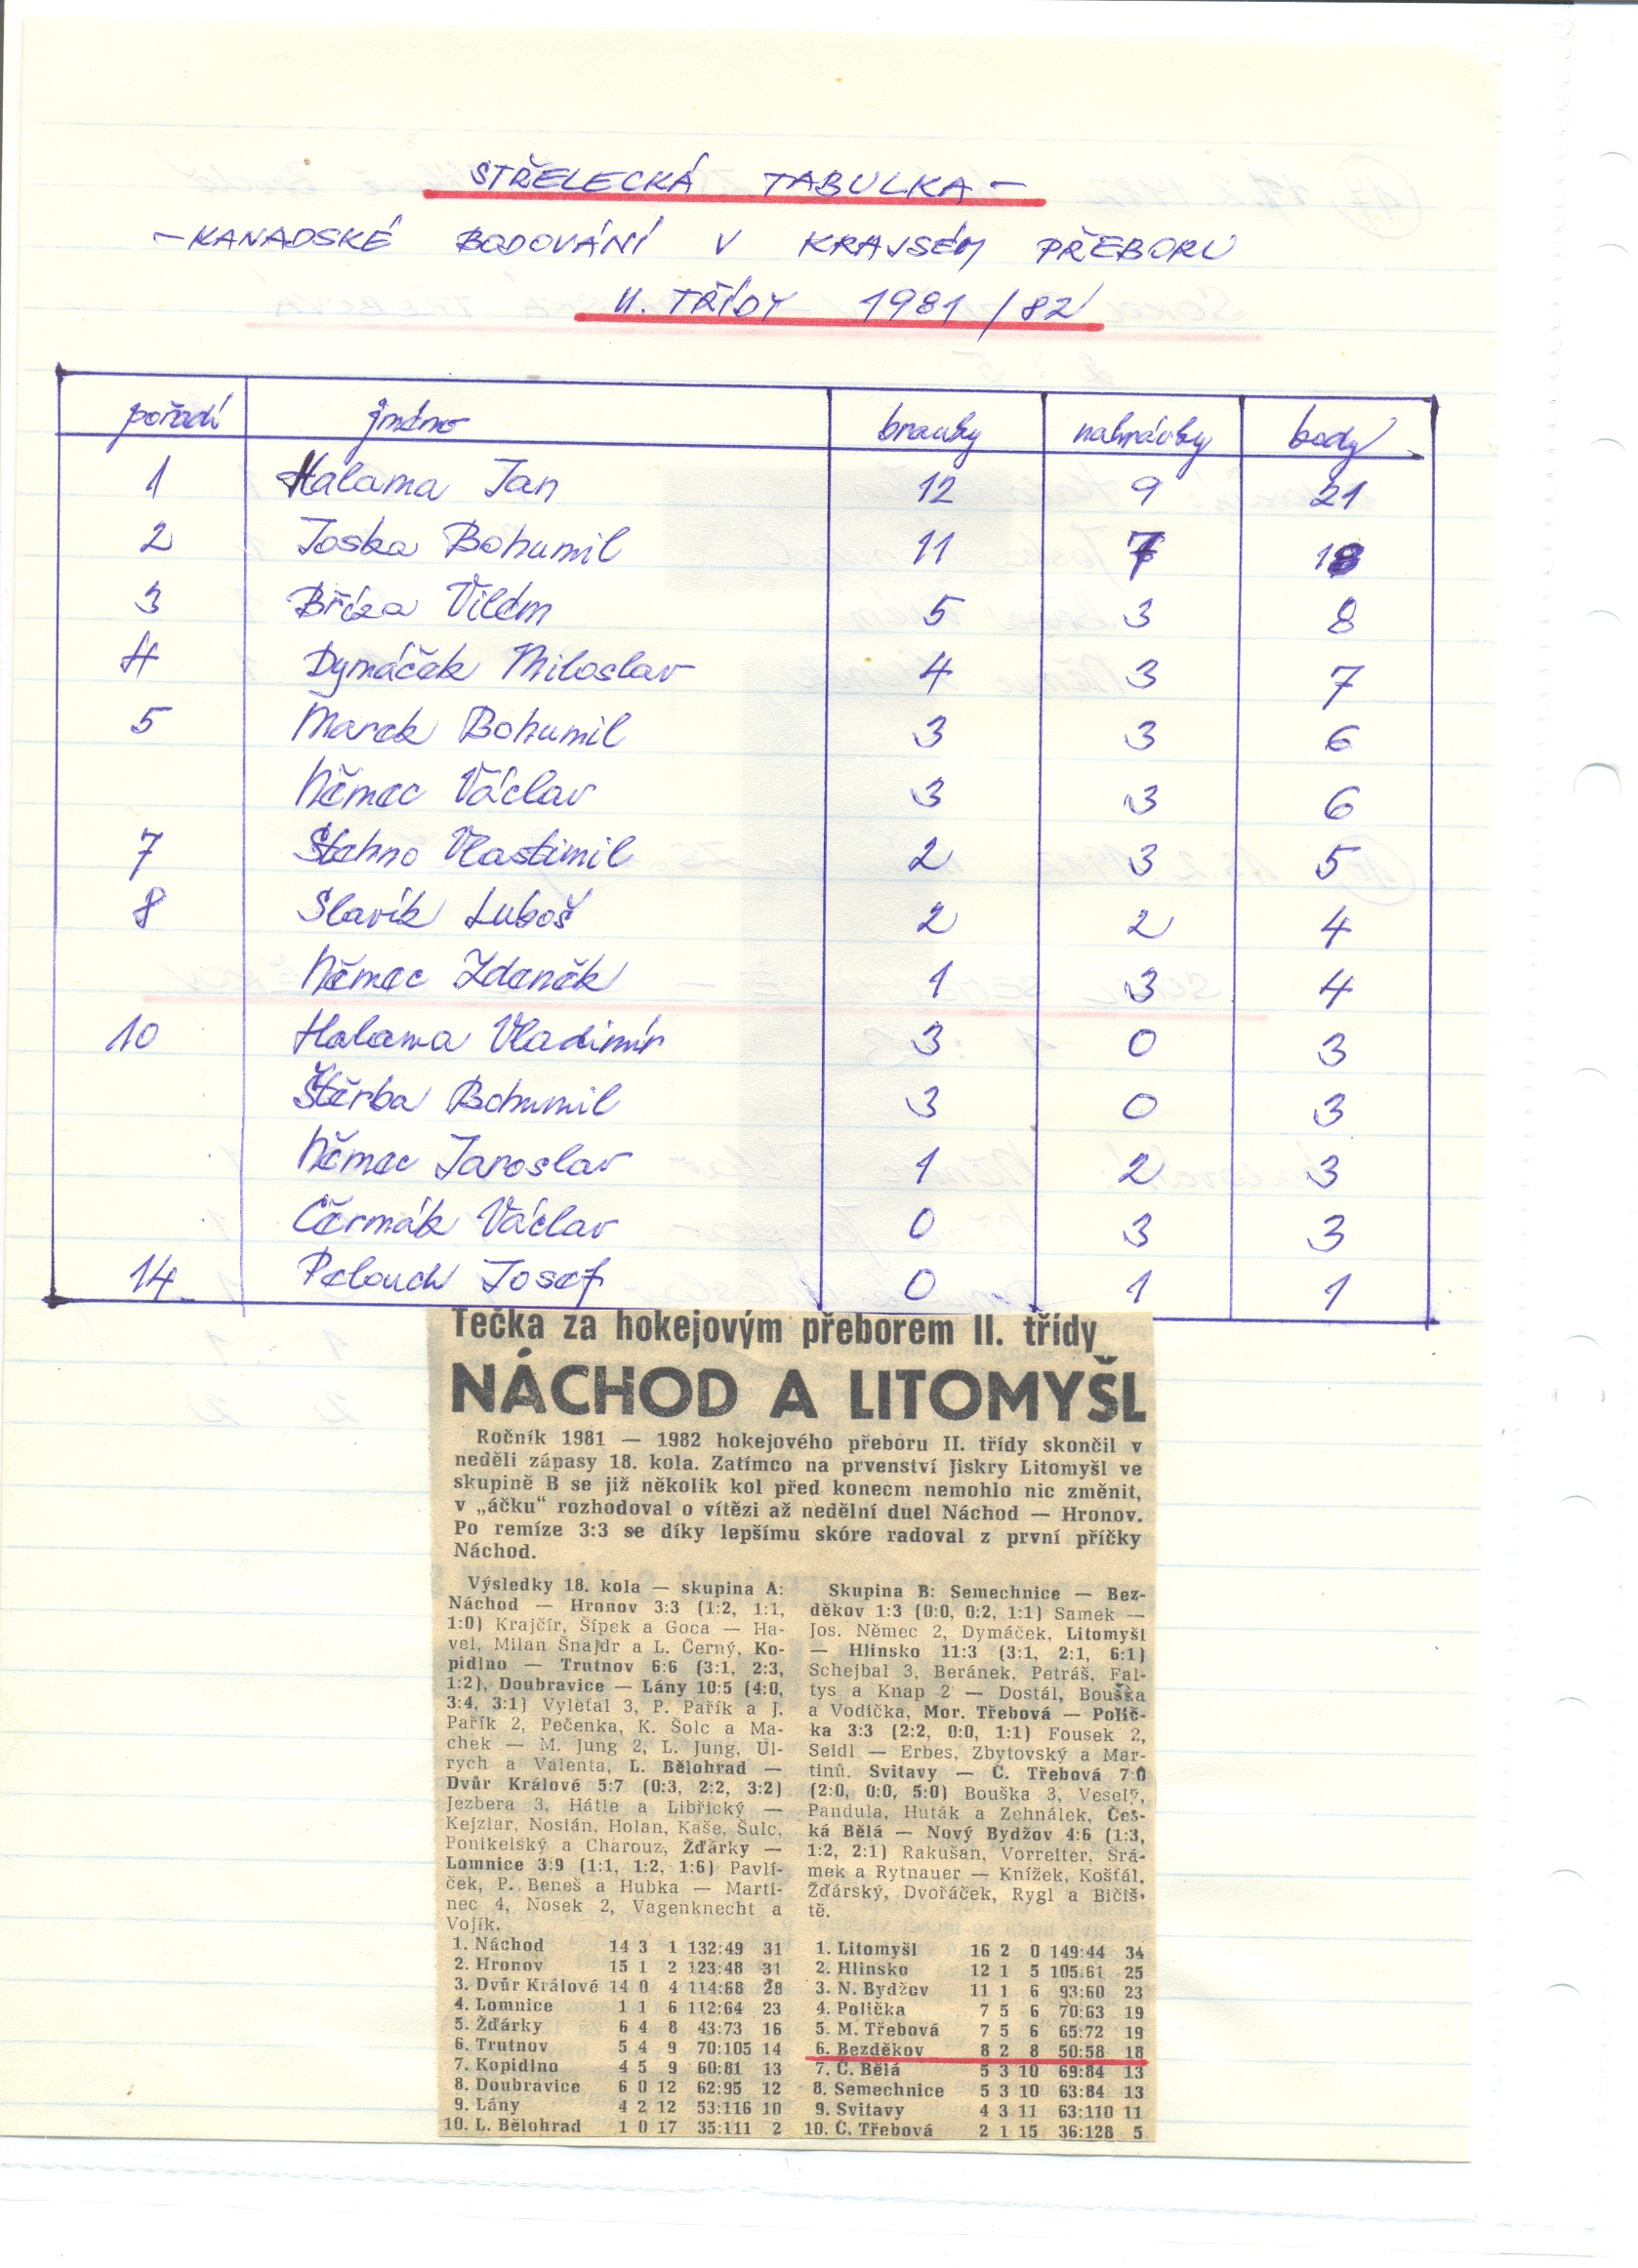 STŘELECKÁ TABULKA –
– KANADSKÉ BODOVÁNÍ V KRAJSÉM PŘEBORU
II. TŘÍDY 1981/82
pořadí jméno branky nahrávky body
1 Halama Jan 12 9 21
2 Joska Bohumil 11 7 18
3 Bříza Vilém 5 3 8
4 Dymáček Miloslav 4 3 7
5 Marek Bohumil 3 3 6
Němec Václav 3 3 6
7 Stehno Vlastimil 2 3 5
8 Slavík Luboš 2 2 4
Němec Zdeněk 1 3 4
10 Halama Vladimír 3 0 3
Štěrba Bohumil 3 0 3
Němec Jaroslav 1 2 3
Čermák Václav 0 3 3
14. Pelouch Josef 0 1 1
Tečka za hokejovým přeborem II. třídy
NÁCHOD A LITOMYŠL
Ročník 1981 — 1982 hokejového přeboru II. třídy skončil v
neděli zápasy 18. kola. Zatímco na prvenství Jiskry Litomyšl ve
skupině B se již několik kol před konecm nemohlo nic změnit,
v „áčku“ rozhodoval o vítězi až nedělní duel Náchod — Hronov.
Po remíze 3:3 se díky lepšímu skóre radoval z první příčky
Náchod.
Výsledky 18. kola — skupina A:
Náchod — Hronov 3:3 (1:2, 1:1,
1:0) Krajčír, Šípek a Goca — Ha-
vel, Milan Šnajdr a L. Černý, Ko-
pidlno — Trutnov 6:6 (3:1, 2:3,
1:2), Doubravice — Lány 10:5 (4:0,
3:4, 3:1) Vyleťal 3, P. Pařík a J.
Pařík 2, Pečenka, K. Šolc a Ma-
chek — M. Jung 2, L. Jung, Ul-
rych a Valenta, L. Bělohrad —
Dvůr Králové 5:7 (0:3, 2:2, 3:2)
Jezbera 3, Hátle a Libřický —
Kejzlar, Nosián, Holan, Kaše, Šulc,
Ponikelský a Charouz, Žďárky —
Lomnice 3:9 (1:1, 1:2, 1:6) Pavlí-
ček, P. Beneš a Hubka — Marti-
nec 4, Nosek 2, Vagenknecht a
Vojík.
1. Náchod 14 3 1 132:49 31
2. Hronov 15 1 2 123:48 31
3. Dvůr Králové 14 0 4 114:68 28
4. Lomnice 1 1 6 112:64 23
5. Žďárky 6 4 8 43:73 16
6. Trutnov 5 4 9 70:105 14
7. Kopidlno 4 5 9 60:81 13
8. Doubravice 6 0 12 62:95 12
9. Lány 4 2 12 53:116 10
10. L. Bělohrad 1 0 17 35:111 2
Skupina B: Semechnice — Bez-
děkov 1:3 (0:0, 0:2, 1:1) Samek —
Jos. Němec 2, Dymáček, Litomyšl
— Hlinsko 11:3 (3:1, 2:1, 6:1)
Schejbal 3, Beránek, Petráš, Fal-
tys a Knap 2 — Dostál, Bouška
a Vodička, Mor. Třebová — Polič-
ka 3:3 (2:2, 0:0, 1:1) Fousek 2,
Seidl — Erbes, Zbytovský a Mar-
tinů. Svitavy — Č. Třebová 7:0
(2:0, 0:0, 5:0) Bouška 3, Veselý,
Pandula, Huták a Zehnálek, Čes-
ká Bělá — Nový Bydžov 4:6 (1:3,
1:2, 2:1) Rakušan, Vorreiter, Šrá-
mek a Rytnauer — Knížek, Košťál,
Žďárský, Dvořáček, Rygl a Bičiš-
tě.
1. Litomyšl 16 2 0 149:44 34
2. Hlinsko 12 1 5 105:61 25
3. N. Bydžov 11 1 6 93:60 23
4. Polička 7 5 6 70:63 19
5. M. Třebová 7 5 6 65:72 19
6. Bezděkov 8 2 8 50:58 18
7. Č. Bělá 5 3 10 69:84 13
8. Semechnice 5 3 10 63:84 13
9. Svitavy 4 3 11 63:110 11
10. Č. Třebová 2 1 15 36:128 5